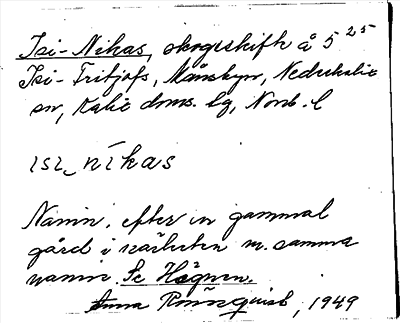 Isi-Nikas, skogsskifte å 5 25
Isi-Fritjofs, Månsbyn, Nederkalix
sn, Kalix doms. lg, Norrb. l
isi_nikas
Namn. efter en gammal
gård i närheten m. samma
namn. Se Högnen.
Anna Rönnquist, 1949